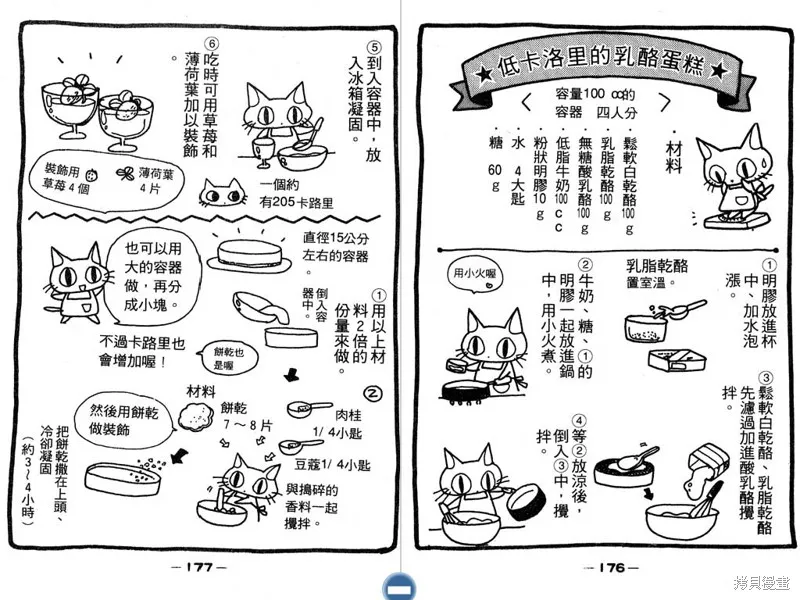 ★低卡洛里的乳酪蛋糕★
容量100㏄的
容器 四人分
・材料
・鬆軟白乾酪100g
・乳脂乾酪100g
・無糖酸乳酪100g
・低脂牛奶100cc
・粉狀明膠10g
・水 4大匙
・糖 60g
①明膠放進杯
中、加水泡
漲。
乳脂乾酪
置室溫。
②牛奶、糖、①的
明膠一起放進鍋
中，用小火煮。
用小火喔
③鬆軟白乾酪、乳脂乾酪
先濾過加進酸乳酪攪
拌。
④等②放涼後，
倒入③中，攪
拌。
－176－
⑤到入容器中，放
入冰箱凝固。
一個約
有205卡路里
⑥吃時可用草莓和
薄荷葉加以裝飾
。
裝飾用
草莓4個
薄荷葉
4片
也可以用
大的容器
做，再分
成小塊。
不過卡路里也
會增加喔！
直徑15公分
左右的容器
。
①用以上材
料2倍的
份量來做。
倒入容
器中。
餅乾也
是喔
②
材料
餅乾
7～8片
肉桂
1/4小匙
豆蔻1/4小匙
與搗碎的
香料一起
攪拌。
然後用餅乾
做裝飾
把餅乾撒在上頭、
冷卻凝固
（約3～4小時）
－177－
拷貝漫畫